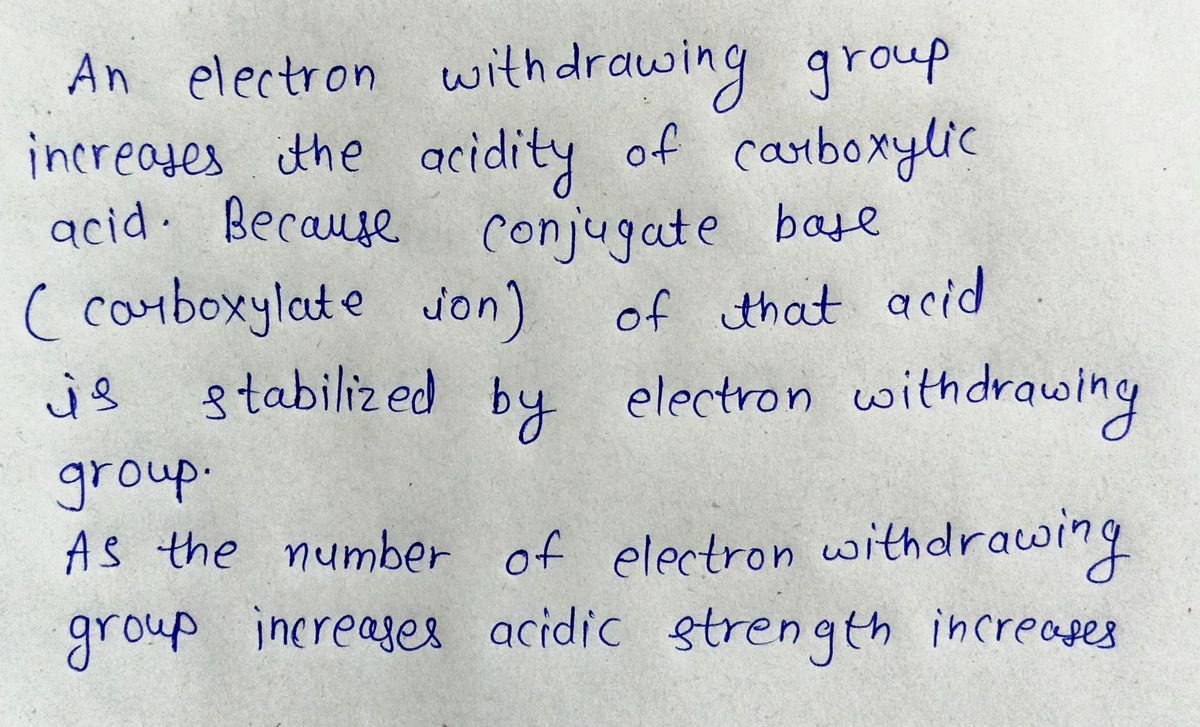 An electron withdrawing group
increases the acidity of carboxylic
acid. Because conjugate base
( carboxylate ion) of that acid
is stabilized by electron withdrawing
group.
As the number of electron withdrawing
group increases acidic strength increases